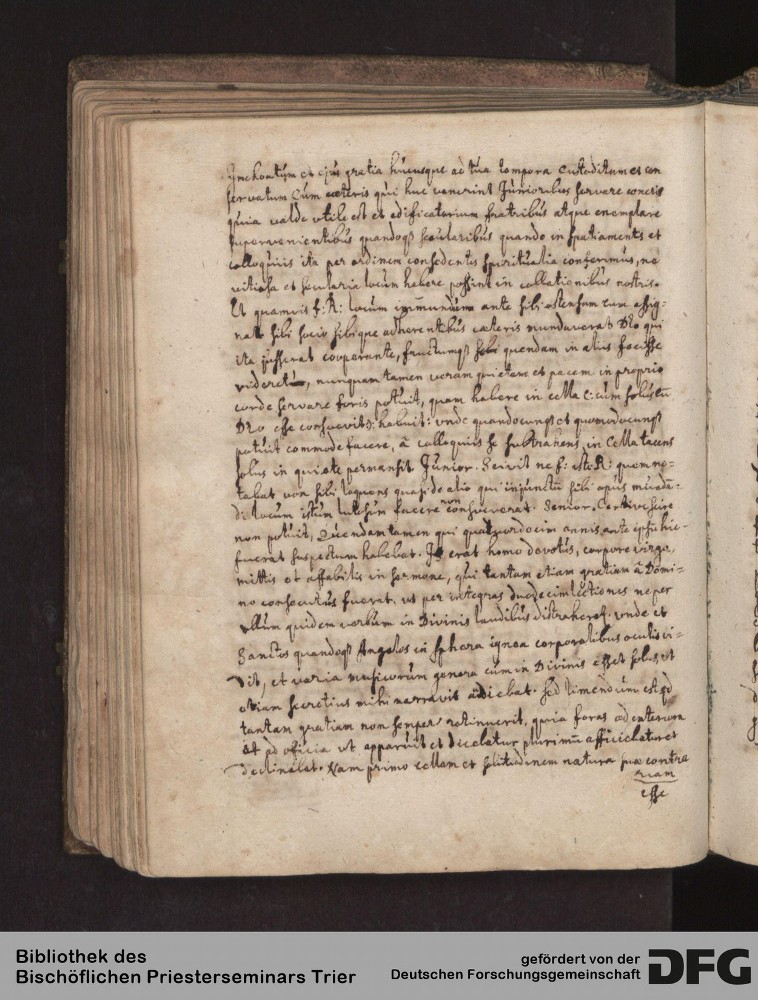 Inchoatum et ejus gratia hucusque ad tua tempora custoditum et con
servatum Cum cæteris qui huc venerint Junioribus servare
quia valde utile est et ædificatorium fratribus atque exemplare
supervenientibus quandoq; secularibus quando in spatiamentis et
colloquiis ita per ordinem consedentes spiritualia conferimus, ne
vitiosa et secularia locum habere possint in collationibus nostris.
Et quamvis f: R: locum immundum ante sibi ostensum cum assig-
nato sibi socio sibique adherentibus cæteris mundaverat Deo qui
ita jusserat cooperante, fructumq; sibi quendam in aliis fecisse
videretur, nunquam tamen veram quietem et pacem in proprio
corde servare foris potuit, quam habere in cella cum solus cu
Deo esse consuevit habuit: unde quandocunq; et quomodocunq;
potuit commode facere, à colloquiis se subtrahens, in Cella tacens
solus in quiete permansit Junior. Scivit ne f: iste R: quem no-
tabat von sibi loquens quasi de alio qui injunctum sibi opus munda-
di locum istum facere non consueverat. Senior. Certive scire
non potuit, Quendam tamen qui quatuordecim annis ante ipsum hic
fuerat suspectum habebat. Is erat homo devotus, corpore virgo,
mittis et affabilis in sermone, qui tantam etiam gratiam à Domi-
no consecutus fuerat, ut per integras duodecim lectiones ne per
ullum quidem verbum in Divinis laudibus distraheret. unde et
Sanctos quandoq; Angelos in sphera ignea corporalibus oculis vi-
dit, et varia musicorum genera cum in Divinis esset solus, ut
etiam secretius mihi narravit audiebat. Sed timendum est qd
tantam gratiam non semper retinuerit, quia foras ad externa
et ad officia ut apparuit et dicebatur plurimum afficiebatur et
declinabat. Nam primo cellam et solitudinem natura suæ contra
riam
esse
Bibliothek des
Bischöflichen Priesterseminars Trier
gefördert von der
Deutschen Forschungsgemeinschaft
DFG